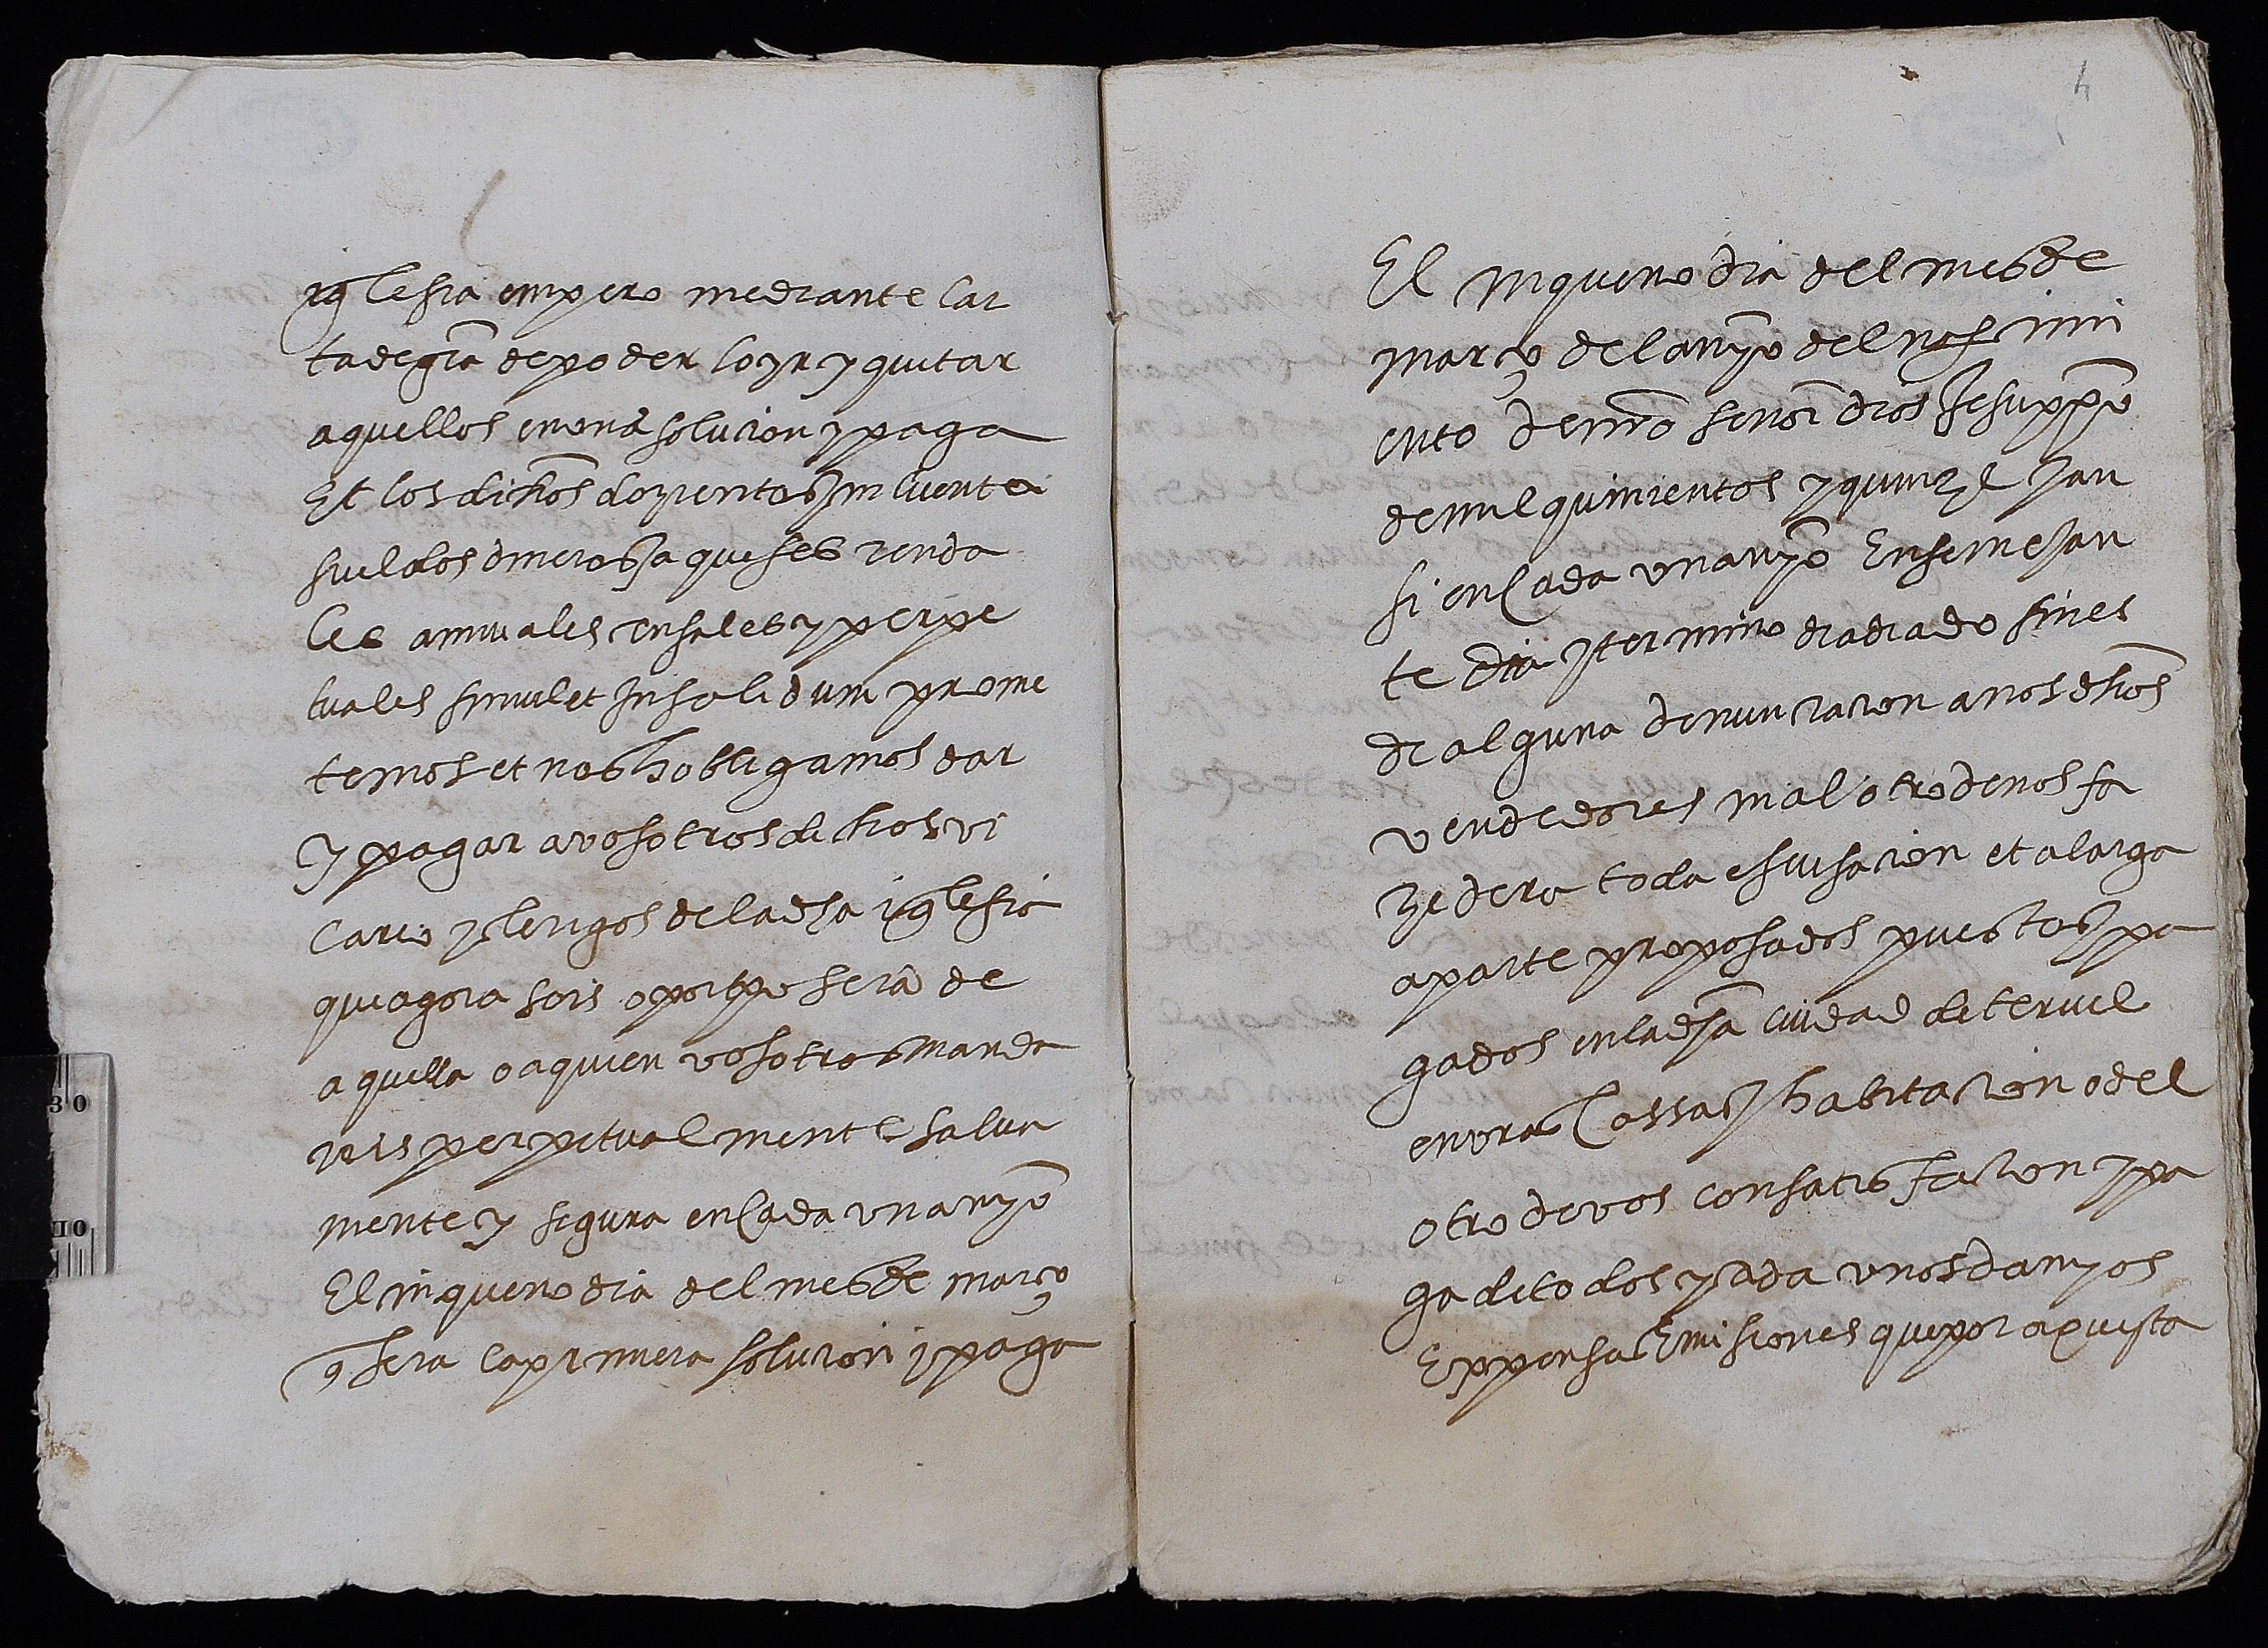 iglesia empero mediante car
ta de grã de poder loyr y quitar
aquellos en una solucion y paga
Et los dichos dozientos y cincuenta
sueldos dineros jaqueses renda
les annuales censales y perpe
tuales simul et Insolidum prome
temos et nos hobligamos dar
y pagar a vosotros dichos vi
cario y clerigos de la dha iglesia
que agora sois o por tpo sera de
aquella o a quien vosotros manda
reis perpetualmente salva
mente y segura en cada un anyo
El cinqueno dia del mes de março
q sera la primera solucion y paga
4
El cinqueno dia del mes de
março del anyo del nascimi
ento de nro senor dios Jesuxpo
de mil quinientos y quinze y an
si en cada un anyo En semejan
te dia y termino diadiado sines
de alguna denunciacion a nos dhos
vendedores ni al otro de nos fa
zedera toda escusacion et alarga
aparte proposados puestos y pa
gados en la dha ciudad de teruel
en vras cassas y habitacion o del
otro de vos con satisfacion y pa
ga de todos y cada unos danyos
Expensas E misiones que por aquesta